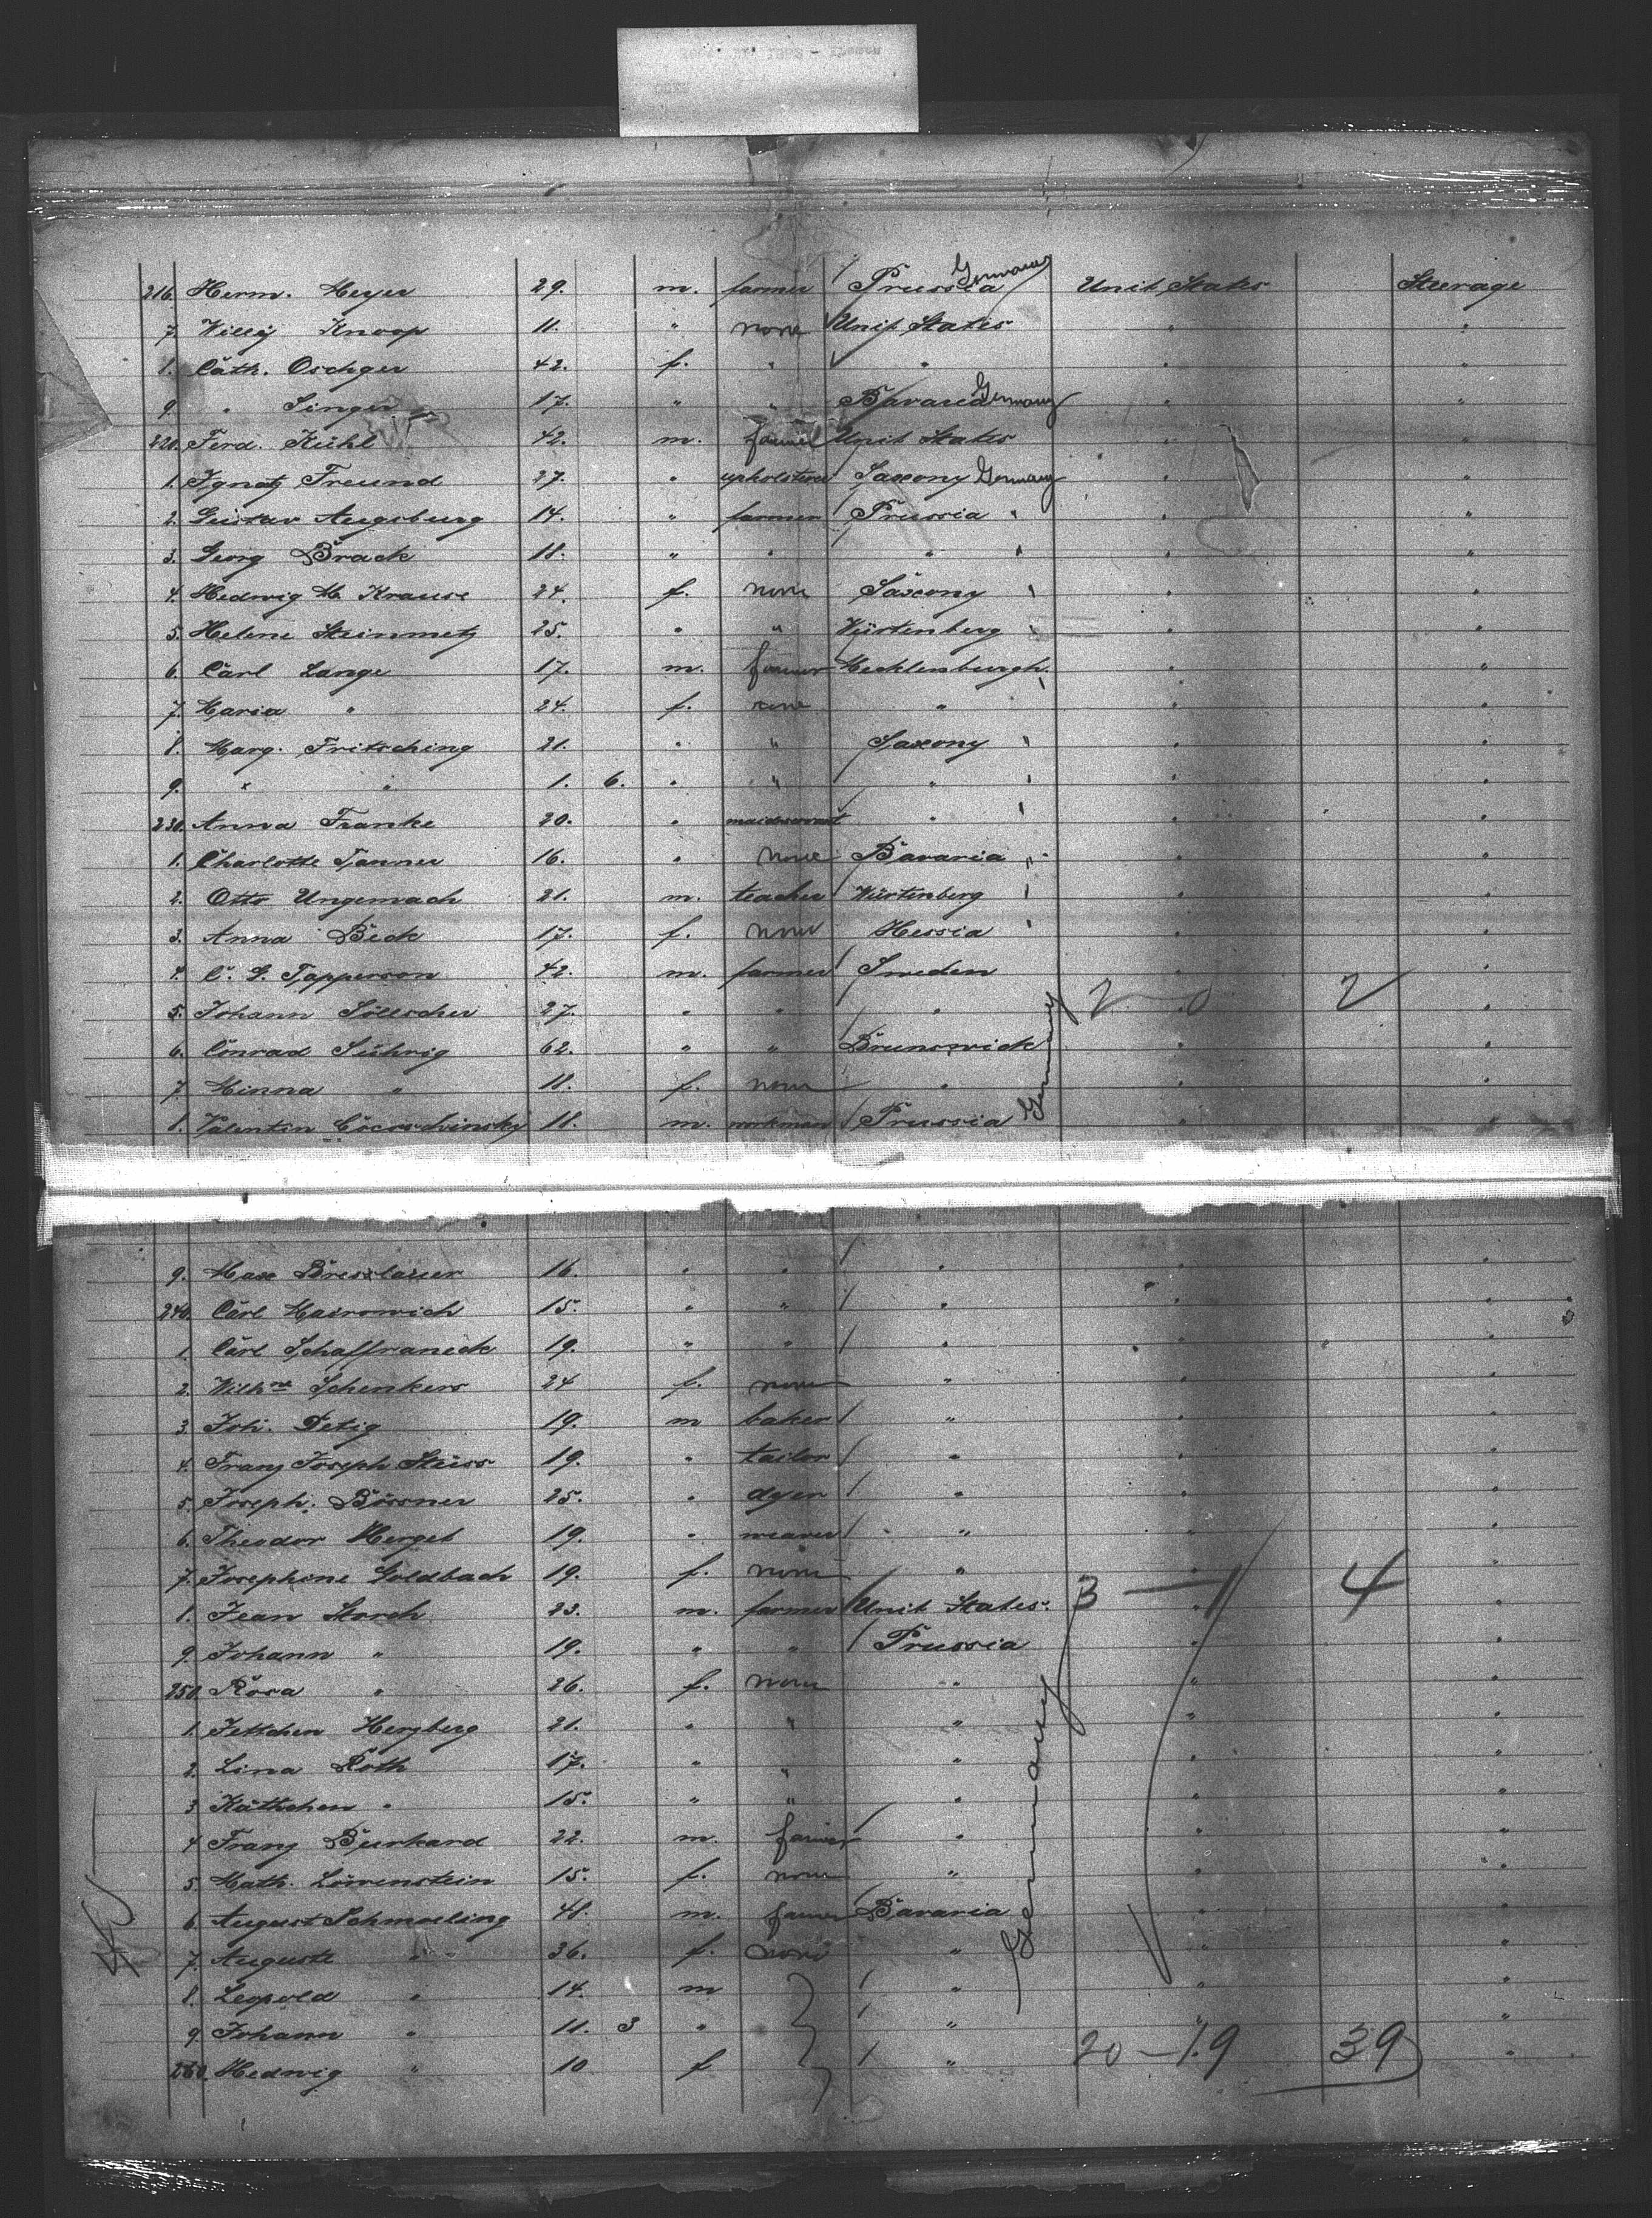 216. Herm. Meyer 29. m. farmer Prussia Germany Unit. States Steerage
7. Willy Knoop 11. " none Unit States " "
8. Cath. Oschger 42. f. " " " "
9. " Singer 17. " " Bavaria Germany " "
220. Ferd. Kühl 42. m. farmer Unit States " "
1. Ignatz Freund 27. " upholsterer Saxony Germany " "
2. Gustav Augsburg 14. " farmer Prussia " " "
3. Georg Brack 18. " " " " " "
4. Hedwig M. Krause 24. f. none Saxony " " "
5. Helene Steinmetz 25. " " Würtenberg " " "
6. Carl Lange 17. m. farmer Mecklenburgh. " "
7. Maria " 24. f. none " " " "
8. Marg. Fritsching 21. " " Saxony " " "
9. " " 1. 6. " " " " " "
230. Anna Franke 20. " maidservant " " " "
1. Charlotte Tanner 16. " none Bavaria " " "
2. Otto Ungemach 21. m. teacher Würtenberg " " "
3. Anna Beck 17. f. none Hessia " " "
4. C. G. Tapperson 42. m. farmer Sweden " "
5. Johann Söllscher 27. " " " 2 — 0 2 "
6. Conrad Sührig 62. " " Brunswick " "
7. Minna " 18. f. none " " "
8. Valentin 18. m. workman Prussia Germany " "
9. Max Bresslauer 16. " " " " "
240. Carl Mairowich 15. " " " " "
1. Carl Schaffraneck 19. " " " " "
2. Wilhne Schenkers 24 f. none " " "
3. Joh. Detig 19. m baker " " "
4. Franz Joseph Stüss 19. " tailor " " "
5. Joseph Bössner 25. " dyer " " "
6. Theodor Herget 19. " weaver " " "
7. Josephine Goldbach 19. f. none " " "
8. Jean Storch 23. m. farmer Unit States. 3 — 1 4 "
9. Johann " 19. " " Prussia " "
250. Rosa " 26. f. none " " "
1. Jettchen Herzberg 21. " " " " "
2. Lina Roth 17. " " " " "
3 Käthchen " 15. " " " " "
4 Franz Burkard 22. m. farmer " " "
5. Math. Löwenstein 15. f. none " " "
6. August Schmaeling 48. m. farmer Bavaria Germany " "
7. Auguste " 36. f. none " " "
8. Leopold " 14. m " " "
9. Johann " 11. 3 " " " "
260. Hedwig " 10 f " 20 — 19 39 "